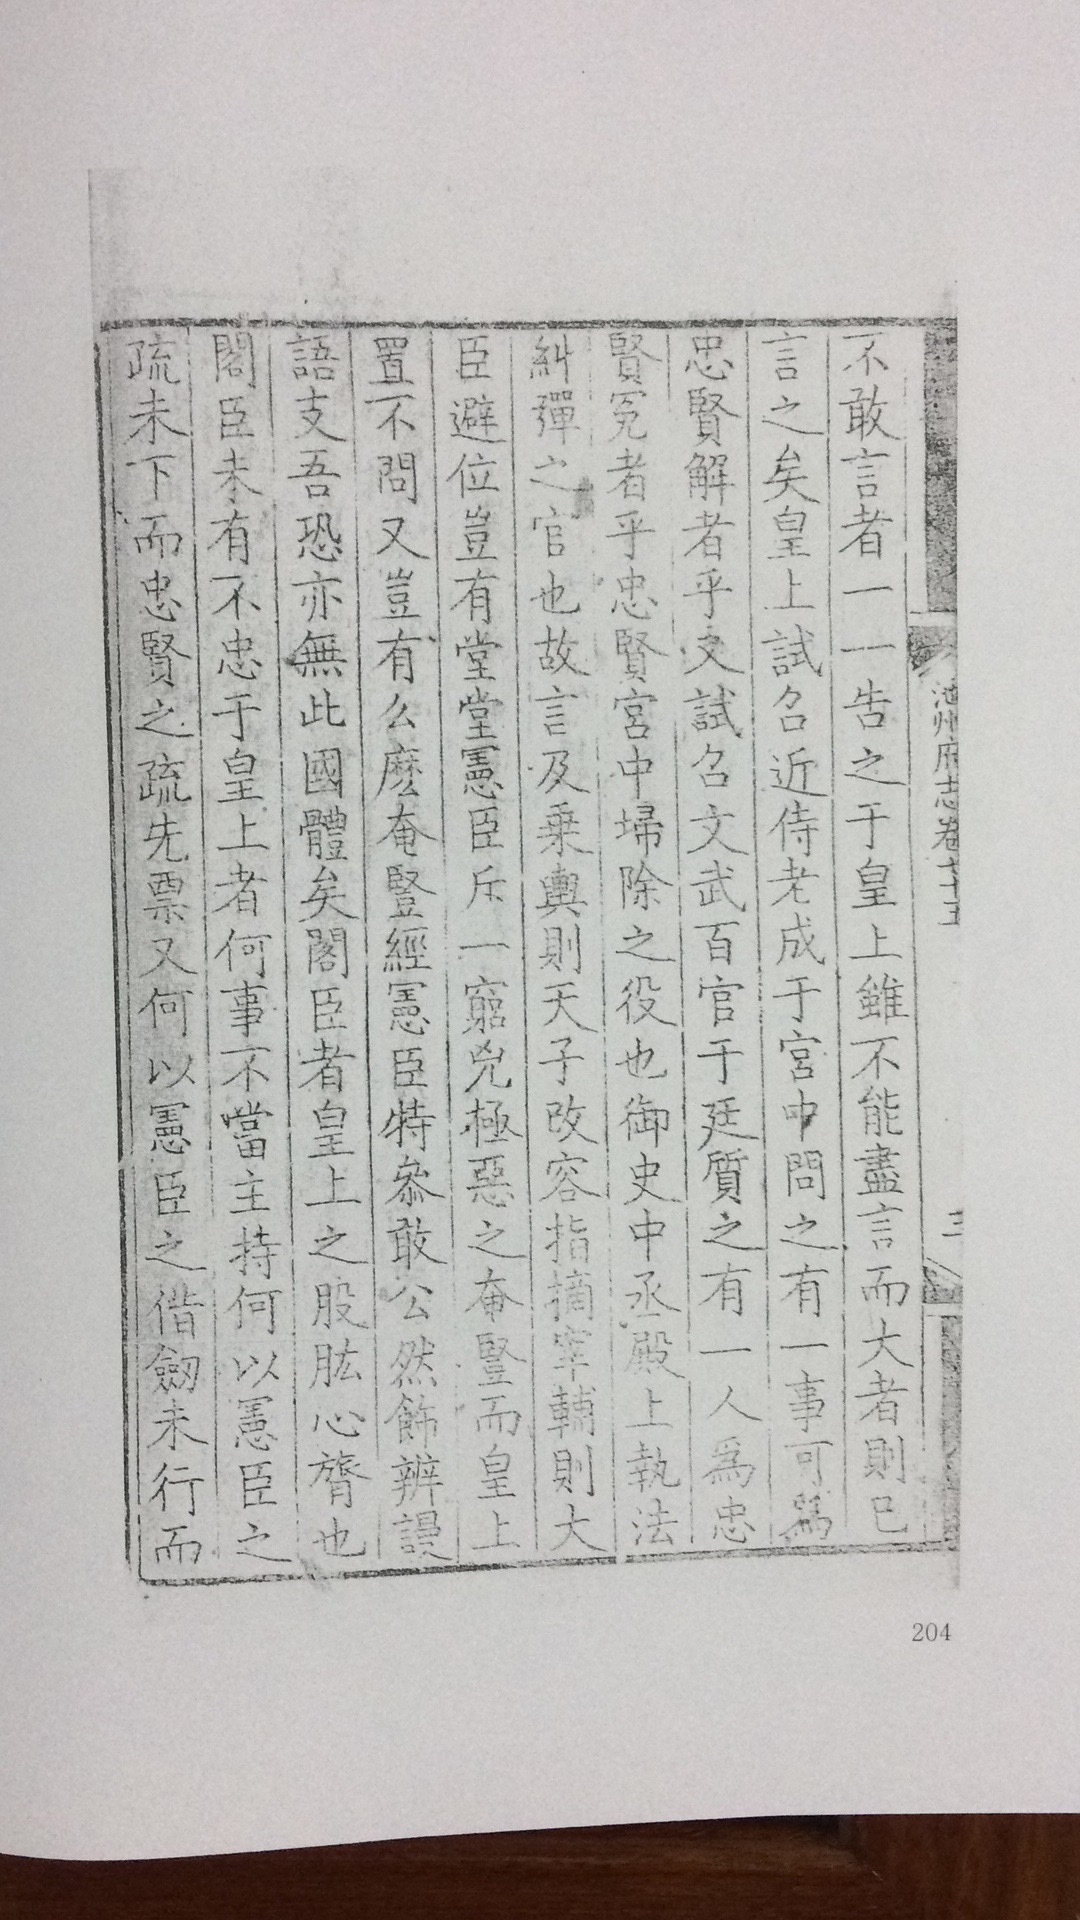 池州府志卷
不敢言者一一告之于皇上雖不能盡言而大者則已
言之矣皇上試召近侍老成于宮中問之有一事可爲
忠賢解者乎又試召文武百官于廷質之有一人爲忠
賢冤者乎忠賢宮中埽除之役也御史中丞殿上執法
糾彈之官也故言及乗輿則天子改容指摘宰輔則大
臣避位豈有堂堂憲臣斥一窮兇極惡之奄豎而皇上
置不問又豈有么麽奄豎經憲臣特叅敢公然飾辨謾
語支吾恐亦無此國體矣閣臣者皇上之股肱心膂也
閣臣未有不忠于皇上者何事不當主持何以憲臣之
疏未下而忠賢之疏先票又何以憲臣之借劒未行而
204